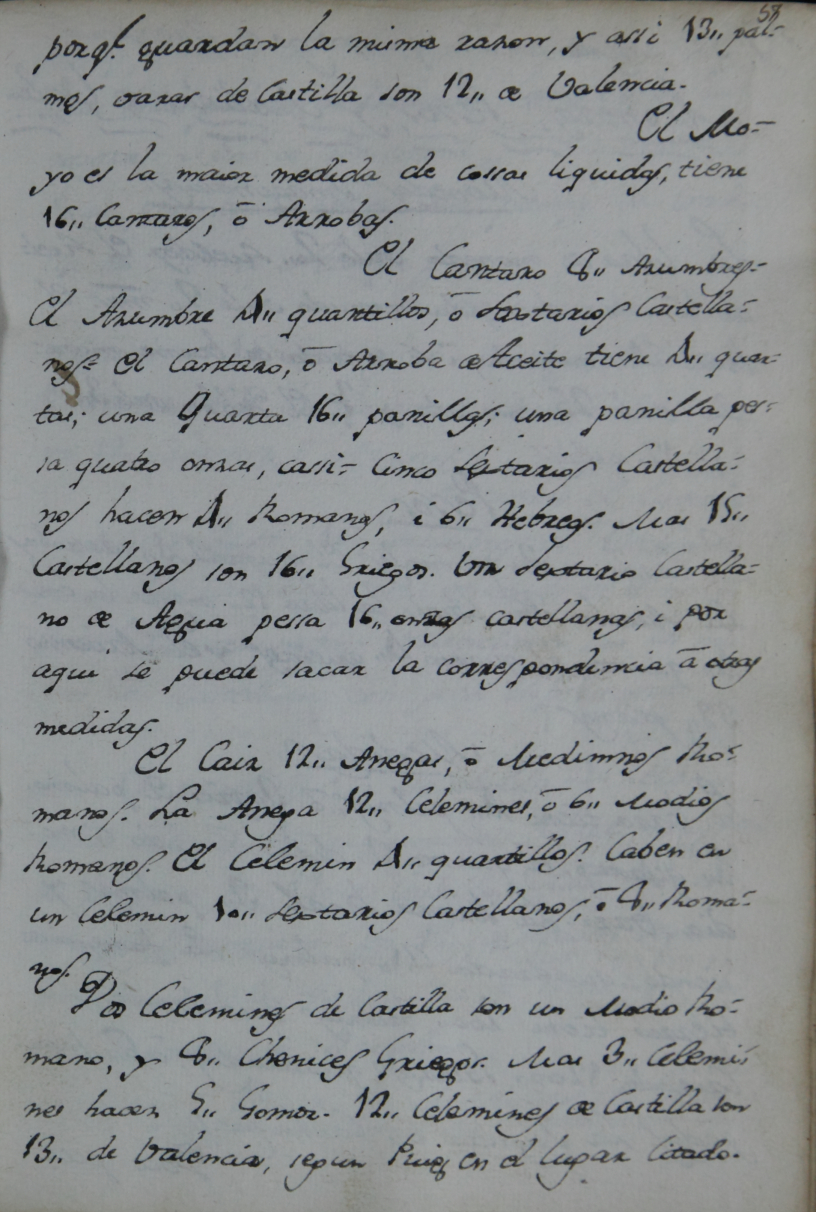 58
porq.e guardan la misma razon, y assi 13,, pal-
mos, varas de Castilla son 12,, de Valencia.
El Mo=
yo es la maior medida de cossas liquidas, tiene
16,, Cantaros, ō Arrobas.
El Cantaro 8,, Azumbres=
El Azumbre 4,, quartillos, ō Sextarios Castella=
nos= El Cantaro, ō Arroba de Aceite tiene 4,, quar-
tas; una Quarta 16,, panillas; una panilla pes=
sa quatro onzas, cassi= Cinco Sextarios Castella=
nos hacen 4,, Romanos, i 6,, Hebreos. Mas 15,,
Castellanos son 16,, Griegos. Un Sextario Castella=
no de Agua pessa 16,, onzas castellanas, i por
aqui se puede sacar la correspondencia ā otras
medidas.
El Caiz 12,, Anegas, ō Medimnos Ro=
manos. La Anega 12,, Celemines, ō 6,, Modios
Romanos. El Celemin 4,, quartillos. Caben en
un Celemin 10,, Sextarios Castellanos, ō 8,, Roma=
nos.
Dos Celemines de Castilla son un Modio Ro=
mano, y 8,, Chenices Griegos. Mas 3,, Celemi=
nes hacen 5,, Gomor. 12,, Celemines de Castilla son
13,, de Valencia, segun Puig en el lugar Citado.